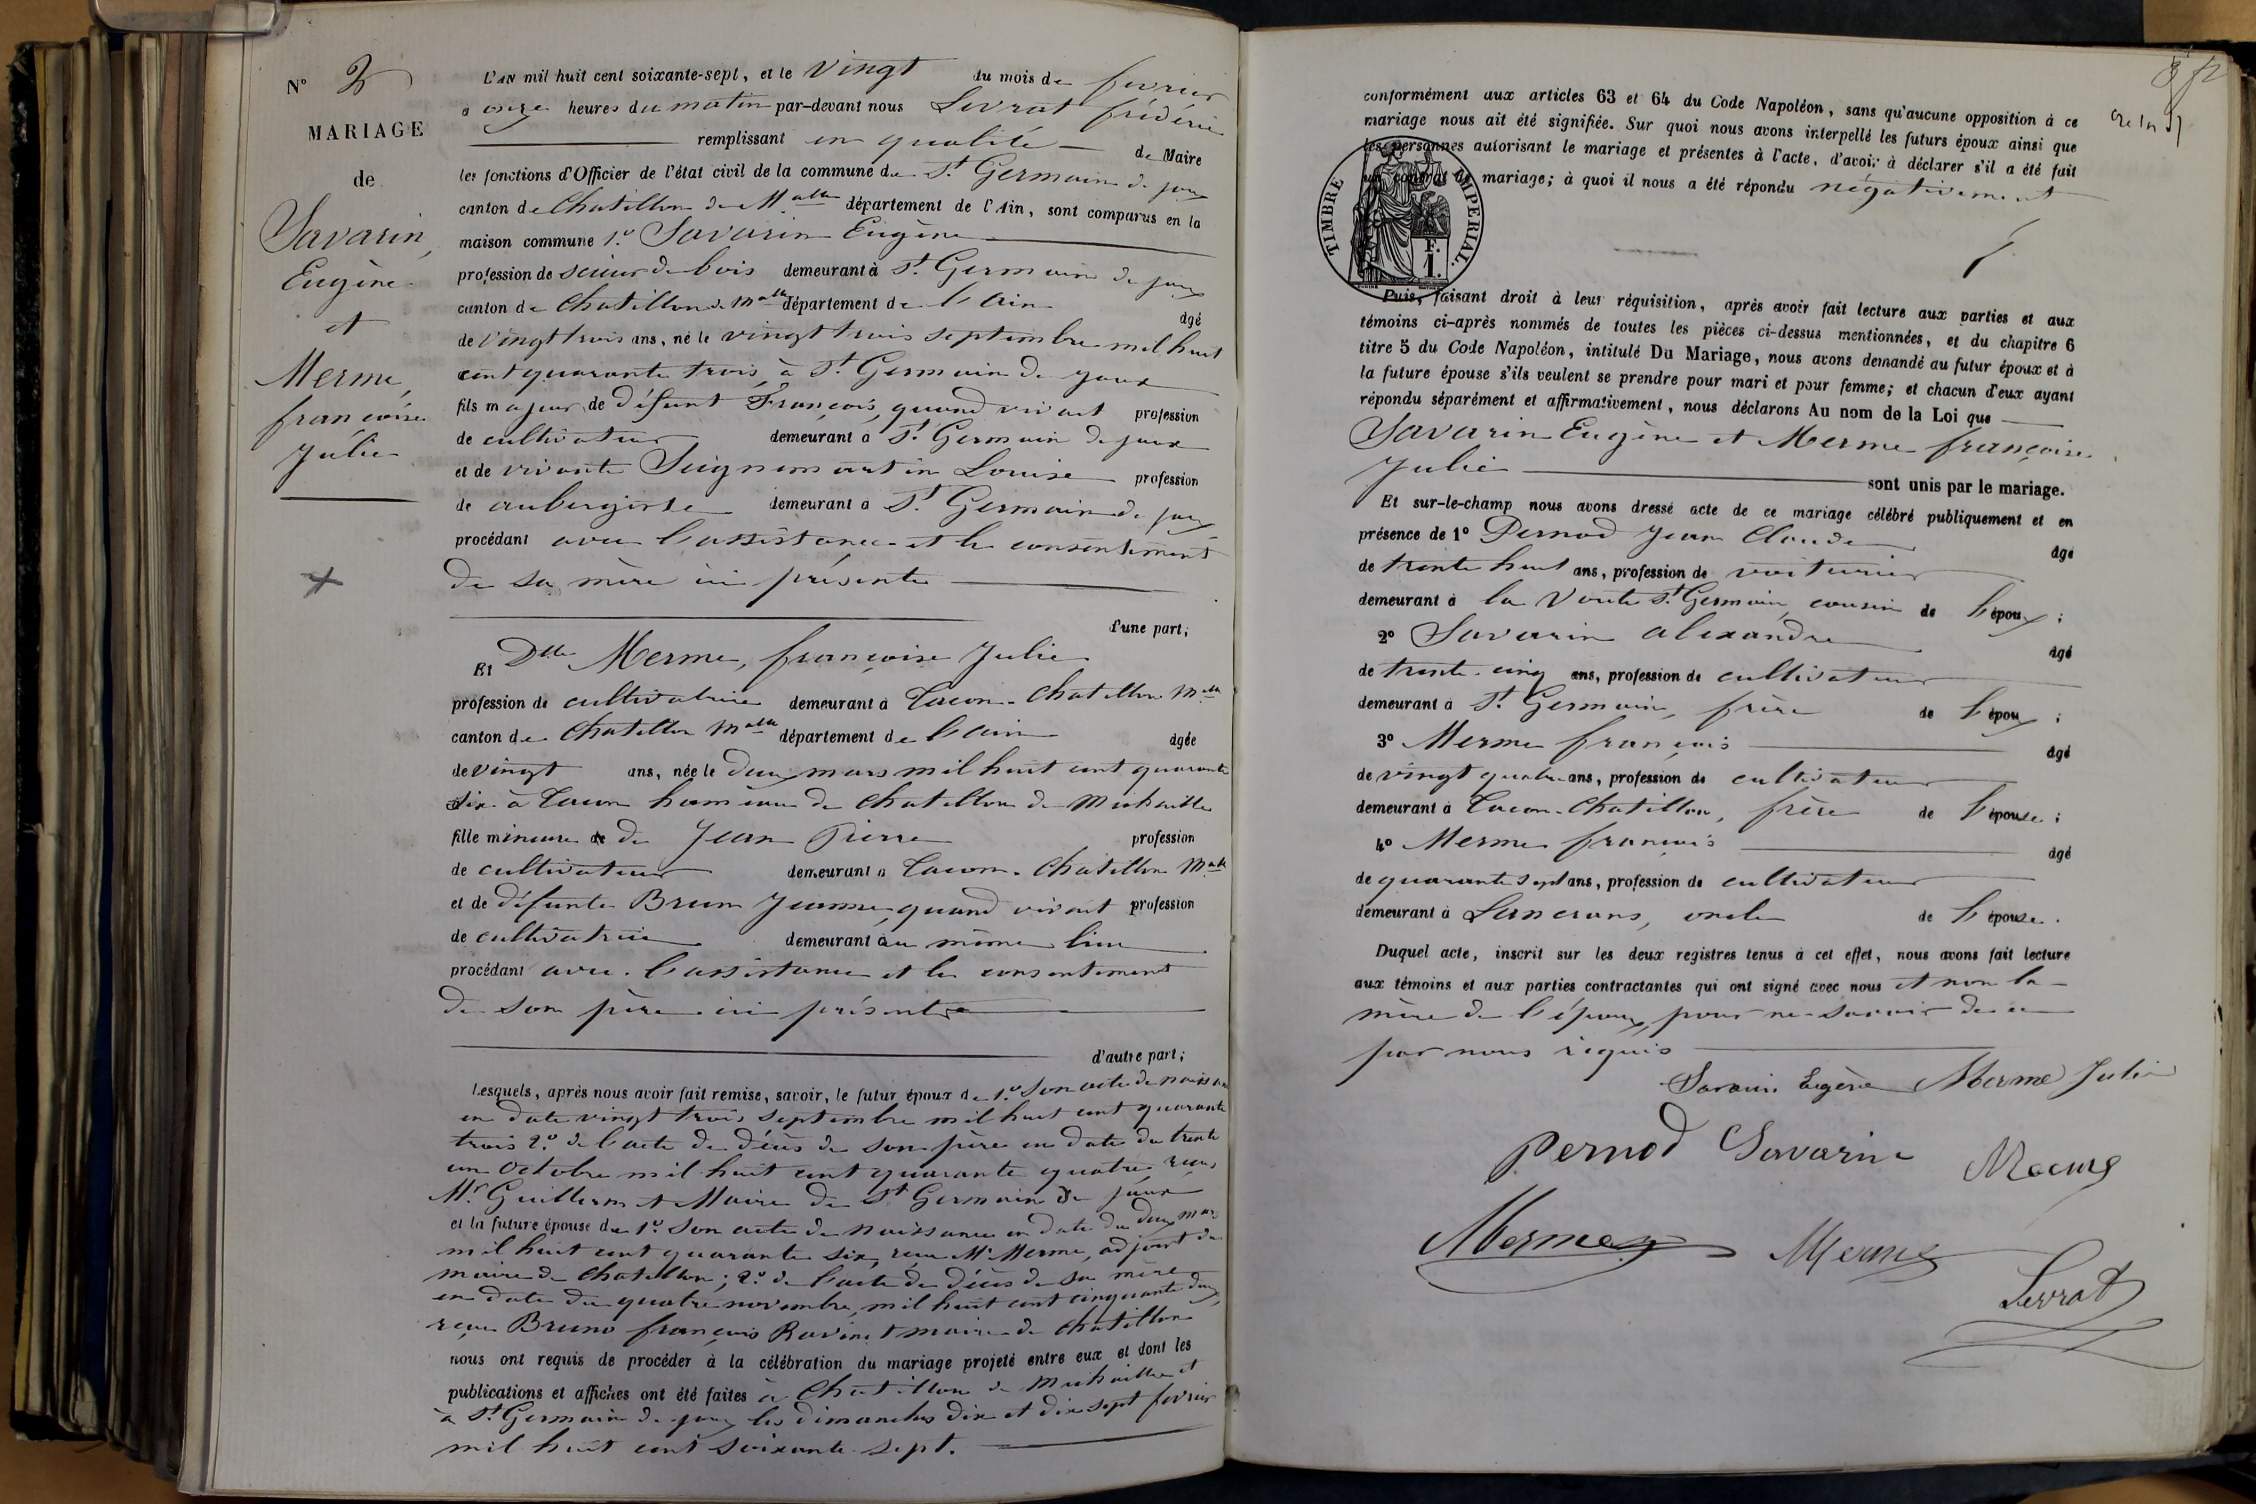 N° 2
MARIAGE
de
Savarin,
Eugène
et
Merme,
françoise
Julie
L'AN mil huit cent soixante-sept, et le vingt du mois de fevrier
à onze heures du matin par-devant nous Levrat frédéric
remplissant en qualité de Maire
les fonctions d'Officier de l'état civil de la commune de St Germain de joux
canton de Chatillon de Mlle département de l'Ain, sont comparus en la
maison commune 1° Savarin Eugène
profession de scieur de bois demeurant à St Germain de joux
canton de Chatillon de Mlle département de l'ain âgé
de vingt trois ans, né le vingt trois septembre mil huit
cent quarante trois, à St Germain de joux
fils majeur de défunt François, quand vivait profession
de cultivateur demeurant à St Germain de joux
et de vivante Seignemartin Louise profession
de aubergiste demeurant à St Germain de joux
procédant avec l'assistance et le consentement
de sa mère ici présente
d'une part;
Et Dlle Merme, françoise Julie
profession de cultivatrice demeurant à Tacon-Chatillon Mlle
canton de Chatillon Mlle département de l'ain âgée
de vingt ans, née le deux mars mil huit cent quarante
six à Tacon hameau de Chatillon de Michaille
fille mineure de Jean Pierre profession
de cultivateur demeurant à Tacon-Chatillon Mlle
et de défunte Brun Jeanne, quand vivait profession
de cultivatrice demeurant au même lieu
procédant avec l'assistance et le consentement
de son père ici présent
d'autre part;
Lesquels, après nous avoir fait remise, savoir, le futur époux de 1° son acte de naissance
en date vingt trois septembre mil huit cent quarante
trois 2° de l'acte de décès de son père en date du trente
un octobre mil huit cent quarante quatre reçus
Mr Guillermet Maire de St Germain de joux
et la future épouse de 1° son acte de naissance en date du deux mars
mil huit cent quarante six, reçu Mr Merme, adjoint du
maire de Chatillon; 2° de l'acte de décès de sa mère
en date du quatre novembre mil huit cent cinquante deux,
reçu Bruno françois Ravinet maire de Chatillon
nous ont requis de procéder à la célébration du mariage projeté entre eux et dont les
publications et affiches ont été faites à Chatillon de Michaille et
à St Germain de joux les dimanches dix et dix sept fevrier
mil huit cent soixante sept.
conformément aux articles 63 et 64 du Code Napoléon, sans qu'aucune opposition à ce
mariage nous ait été signifiée. Sur quoi nous avons interpellé les futurs époux ainsi que
les personnes autorisant le mariage et présentes à l'acte, d'avoir à déclarer s'il a été fait
un contrat de mariage; à quoi il nous a été répondu négativement
TIMBRE IMPERIAL
F.
1.
Puis, faisant droit à leur réquisition, après avoir fait lecture aux parties et aux
témoins ci-après nommés de toutes les pièces ci-dessus mentionnées, et du chapitre 6
titre 5 du Code Napoléon, intitulé Du Mariage, nous avons demandé au futur époux et à
la future épouse s'ils veulent se prendre pour mari et pour femme; et chacun d'eux ayant
répondu séparément et affirmativement, nous déclarons Au nom de la Loi que
Savarin Eugène et Merme françoise
Julie sont unis par le mariage.
Et sur-le-champ nous avons dressé acte de ce mariage célébré publiquement et en
présence de 1° Pernod Jean Claude âgé
de trente huit ans, profession de voiturier
demeurant à la Voute St Germain, cousin de l'époux;
2° Savarin alexandre âgé
de trente-cinq ans, profession de cultivateur
demeurant à St Germain, frère de l'époux;
3° Merme françois âgé
de vingt quatre ans, profession de cultivateur
demeurant à Tacon-Chatillon, frère de l'épouse;
4° Merme françois âgé
de quarante sept ans, profession de cultivateur
demeurant à Lancrans, oncle de l'épouse.
Duquel acte, inscrit sur les deux registres tenus à cet effet, nous avons fait lecture
aux témoins et aux parties contractantes qui ont signé avec nous et non la
mère de l'époux, pour ne savoir de ce
par nous requis
Savarin Eugène Merme Julie
Pernod Savarin Merme
Merme Merme
Levrat